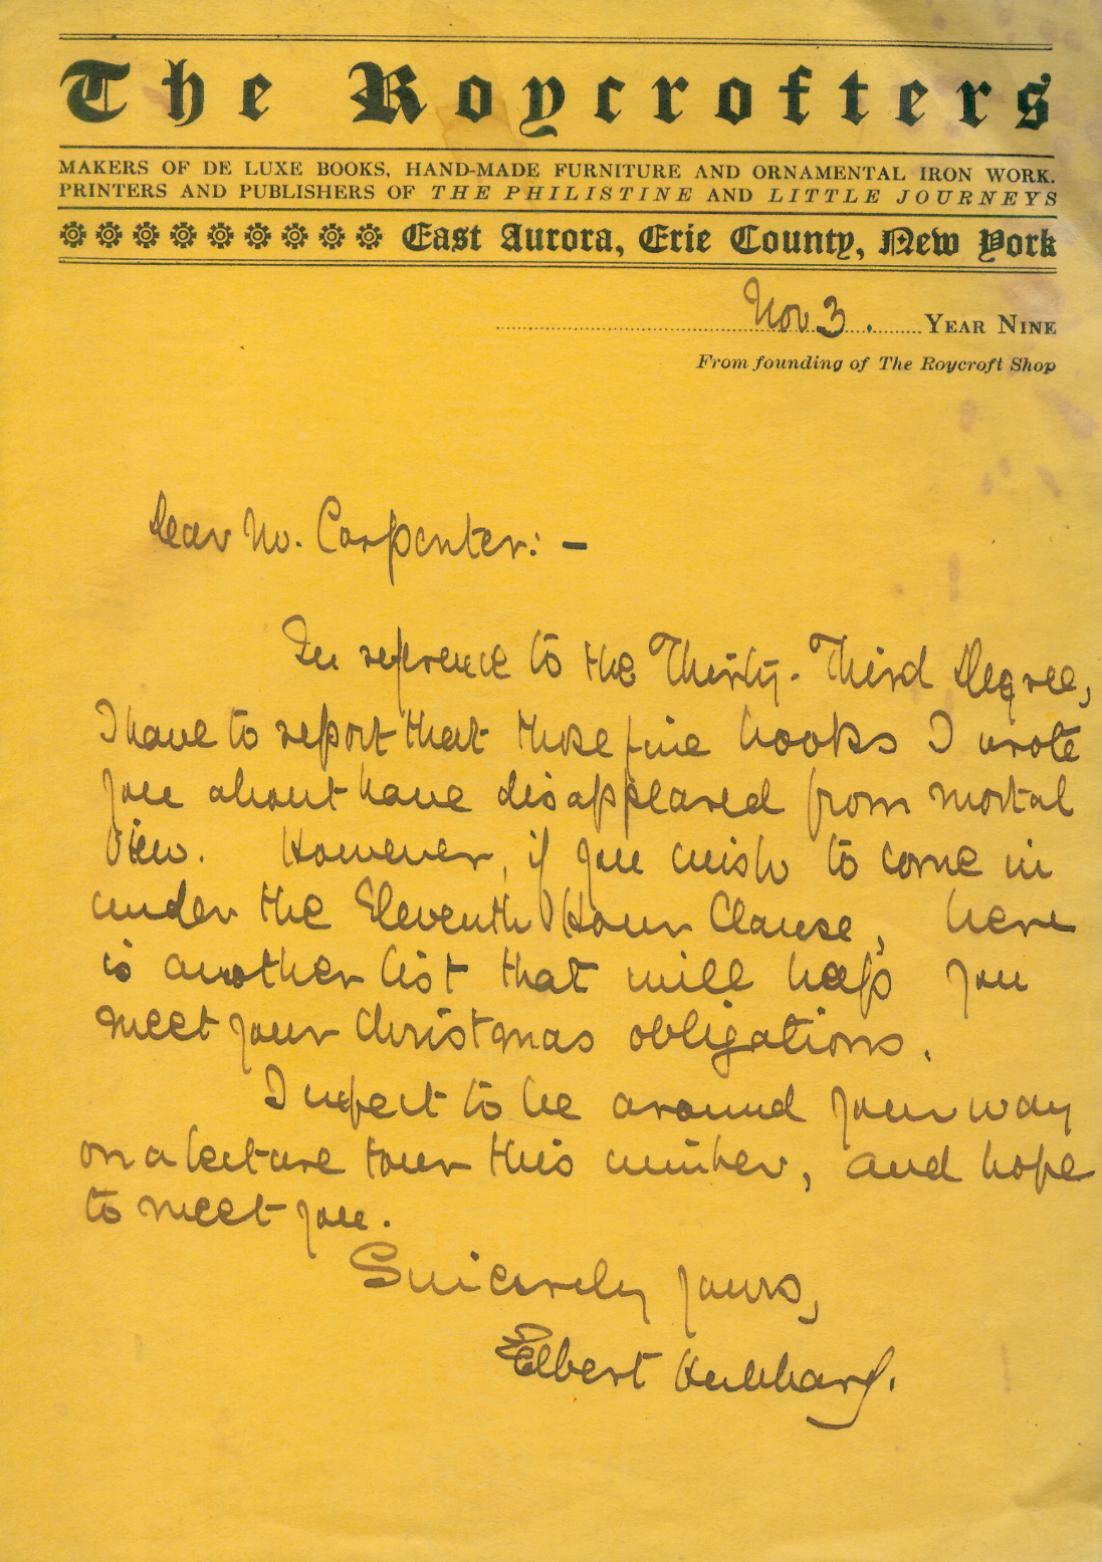 The Roycrofters
MAKERS OF DE LUXE BOOKS, HAND-MADE FURNITURE AND ORNAMENTAL IRON WORK.
PRINTERS AND PUBLISHERS OF THE PHILISTINE AND LITTLE JOURNEYS
East Aurora, Erie County, New York
Nov 3. YEAR NINE
From founding of The Roycroft Shop
Dear Mr. Carpenter: –
In reference to the Thirty-Third Degree,
I have to report that those fine books I wrote
you about have disappeared from mortal
view. However, if you wish to come in
under the Eleventh Hour Clause, here
is another list that will help you
meet your Christmas obligations.
I expect to be around your way
on a lecture tour this winter, and hope
to meet you.
Sincerely yours,
Elbert Hubbard.